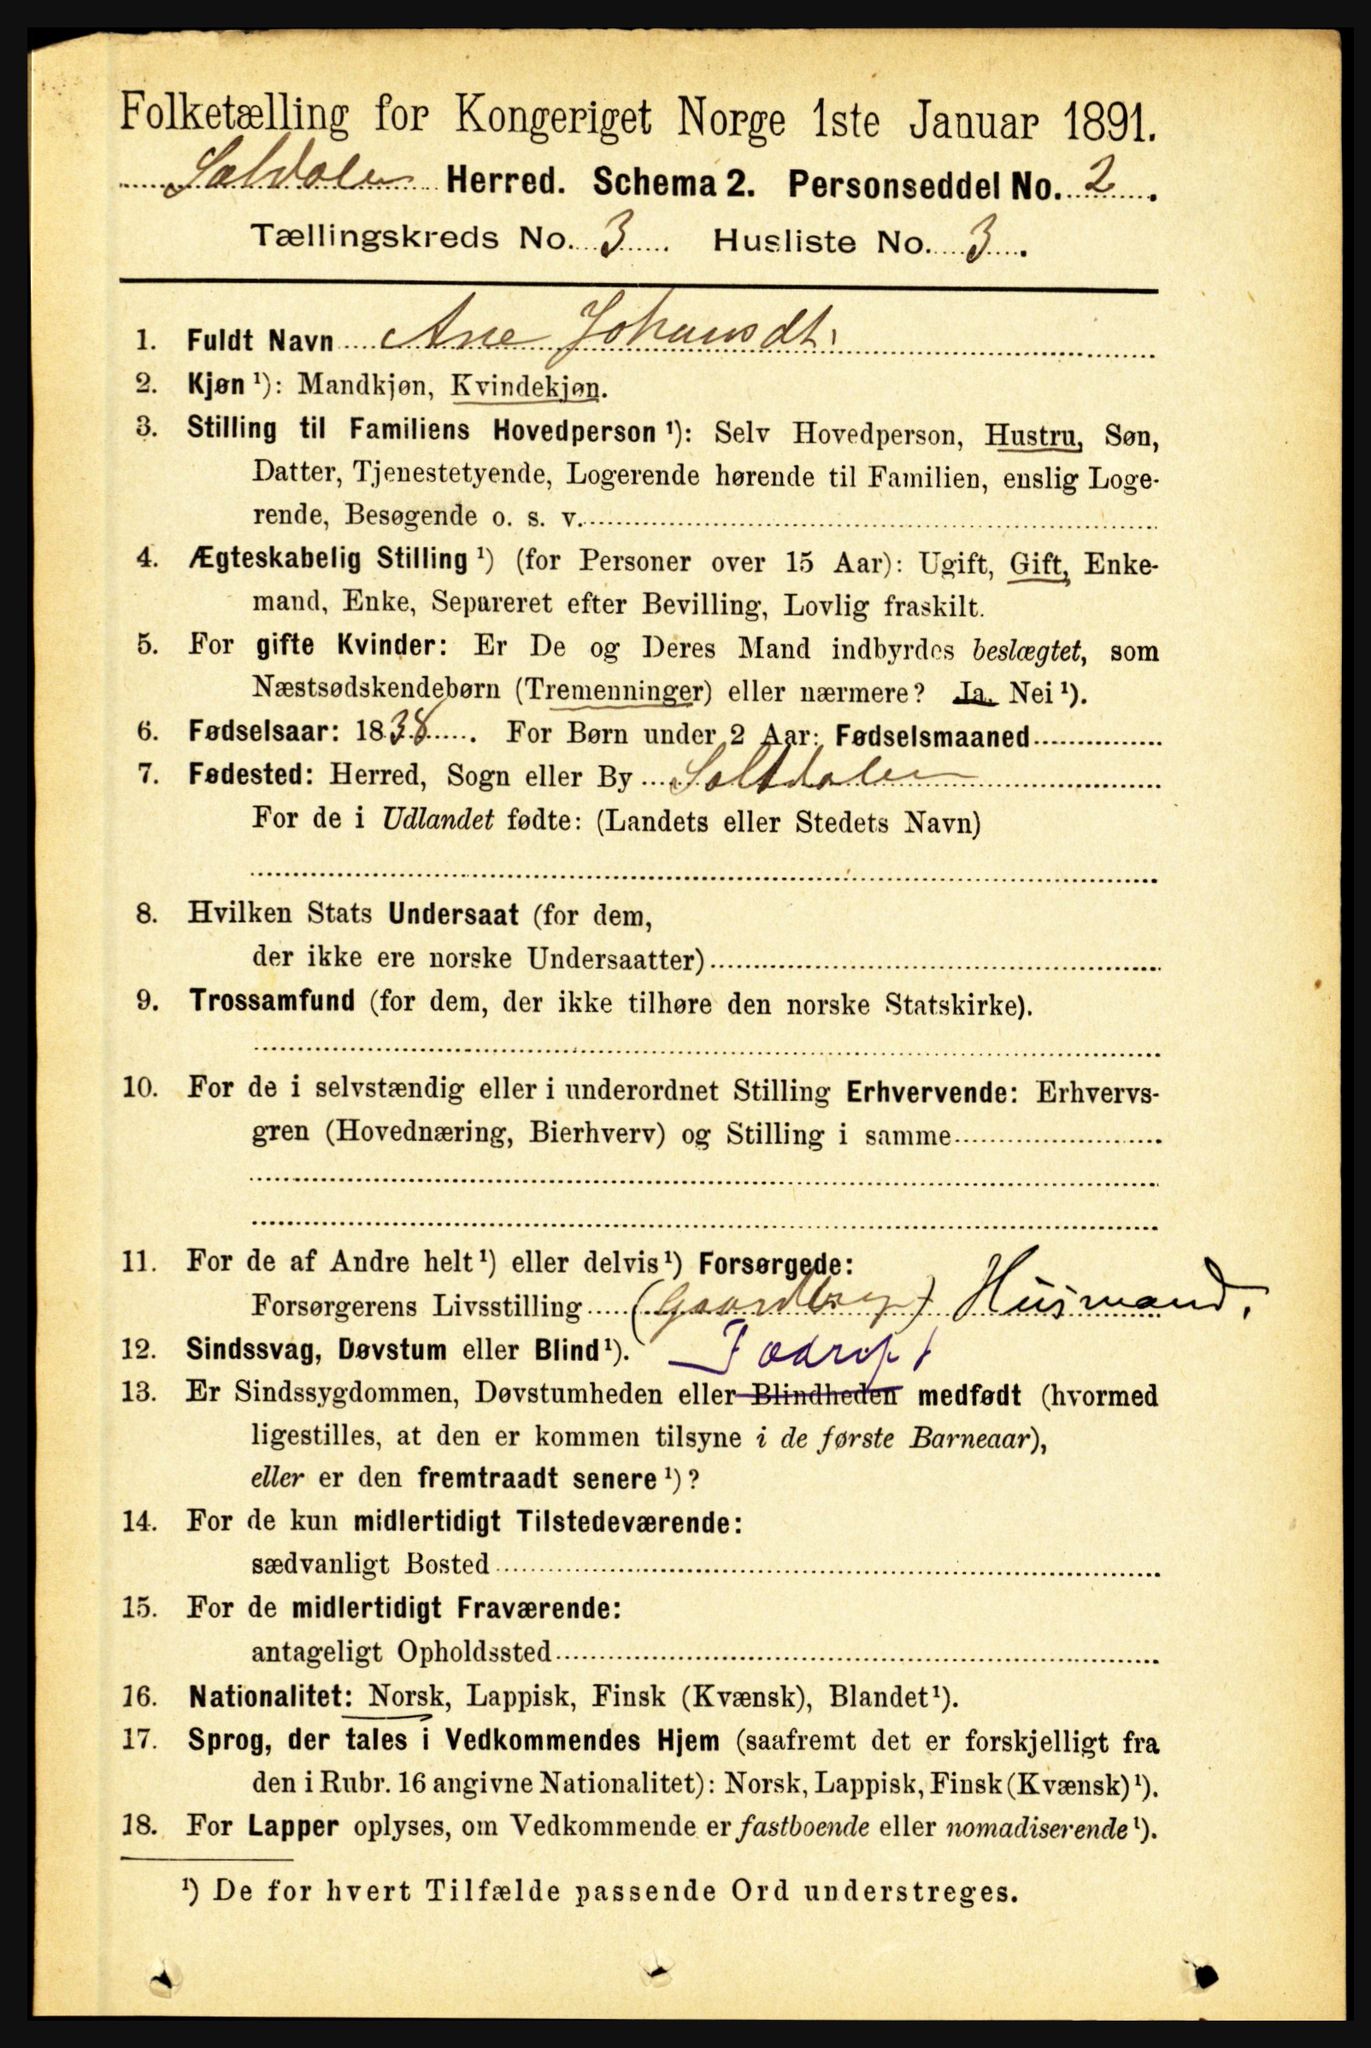 Folketælling for Kongeriget Norge 1ste Januar 1891.
Saltdalen Herred. Schema 2. Personseddel No. 2.
Tællingskreds No. 3. Husliste No. 3.
1. Fuldt Navn Ane Johansdt.
2. Kjøn ¹): Mandkjøn, Kvindekjøn.
3. Stilling til Familiens Hovedperson ¹): Selv Hovedperson, Hustru, Søn,
Datter, Tjenestetyende, Logerende hørende til Familien, enslig Loge-
rende, Besøgende o. s. v.
4. Ægteskabelig Stilling ¹) (for Personer over 15 Aar): Ugift, Gift, Enke-
mand, Enke, Separeret efter Bevilling, Lovlig fraskilt.
5. For gifte Kvinder: Er De og Deres Mand indbyrdes beslægtet, som
Næstsødskendebørn (Tremenninger) eller nærmere? Ja. Nei ¹).
6. Fødselsaar: 1838. For Børn under 2 Aar: Fødselsmaaned
7. Fødested: Herred, Sogn eller By Saltdalen
For de i Udlandet fødte: (Landets eller Stedets Navn)
8. Hvilken Stats Undersaat (for dem,
der ikke ere norske Undersaatter)
9. Trossamfund (for dem, der ikke tilhøre den norske Statskirke).
10. For de i selvstændig eller i underordnet Stilling Erhvervende: Erhvervs-
gren (Hovednæring, Bierhverv) og Stilling i samme
11. For de af Andre helt ¹) eller delvis ¹) Forsørgede:
Forsørgerens Livsstilling (Gaardbrug) Husmand.
12. Sindssvag, Døvstum eller Blind ¹).
13. Er Sindssygdommen, Døvstumheden eller Blindheden medfødt (hvormed
ligestilles, at den er kommen tilsyne i de første Barneaar),
eller er den fremtraadt senere ¹)?
14. For de kun midlertidigt Tilstedeværende:
sædvanligt Bosted
15. For de midlertidigt Fraværende:
antageligt Opholdssted
16. Nationalitet: Norsk, Lappisk, Finsk (Kvænsk), Blandet ¹).
17. Sprog, der tales i Vedkommendes Hjem (saafremt det er forskjelligt fra
den i Rubr. 16 angivne Nationalitet): Norsk, Lappisk, Finsk (Kvænsk) ¹).
18. For Lapper oplyses, om Vedkommende er fastboende eller nomadiserende ¹).
¹) De for hvert Tilfælde passende Ord understreges.